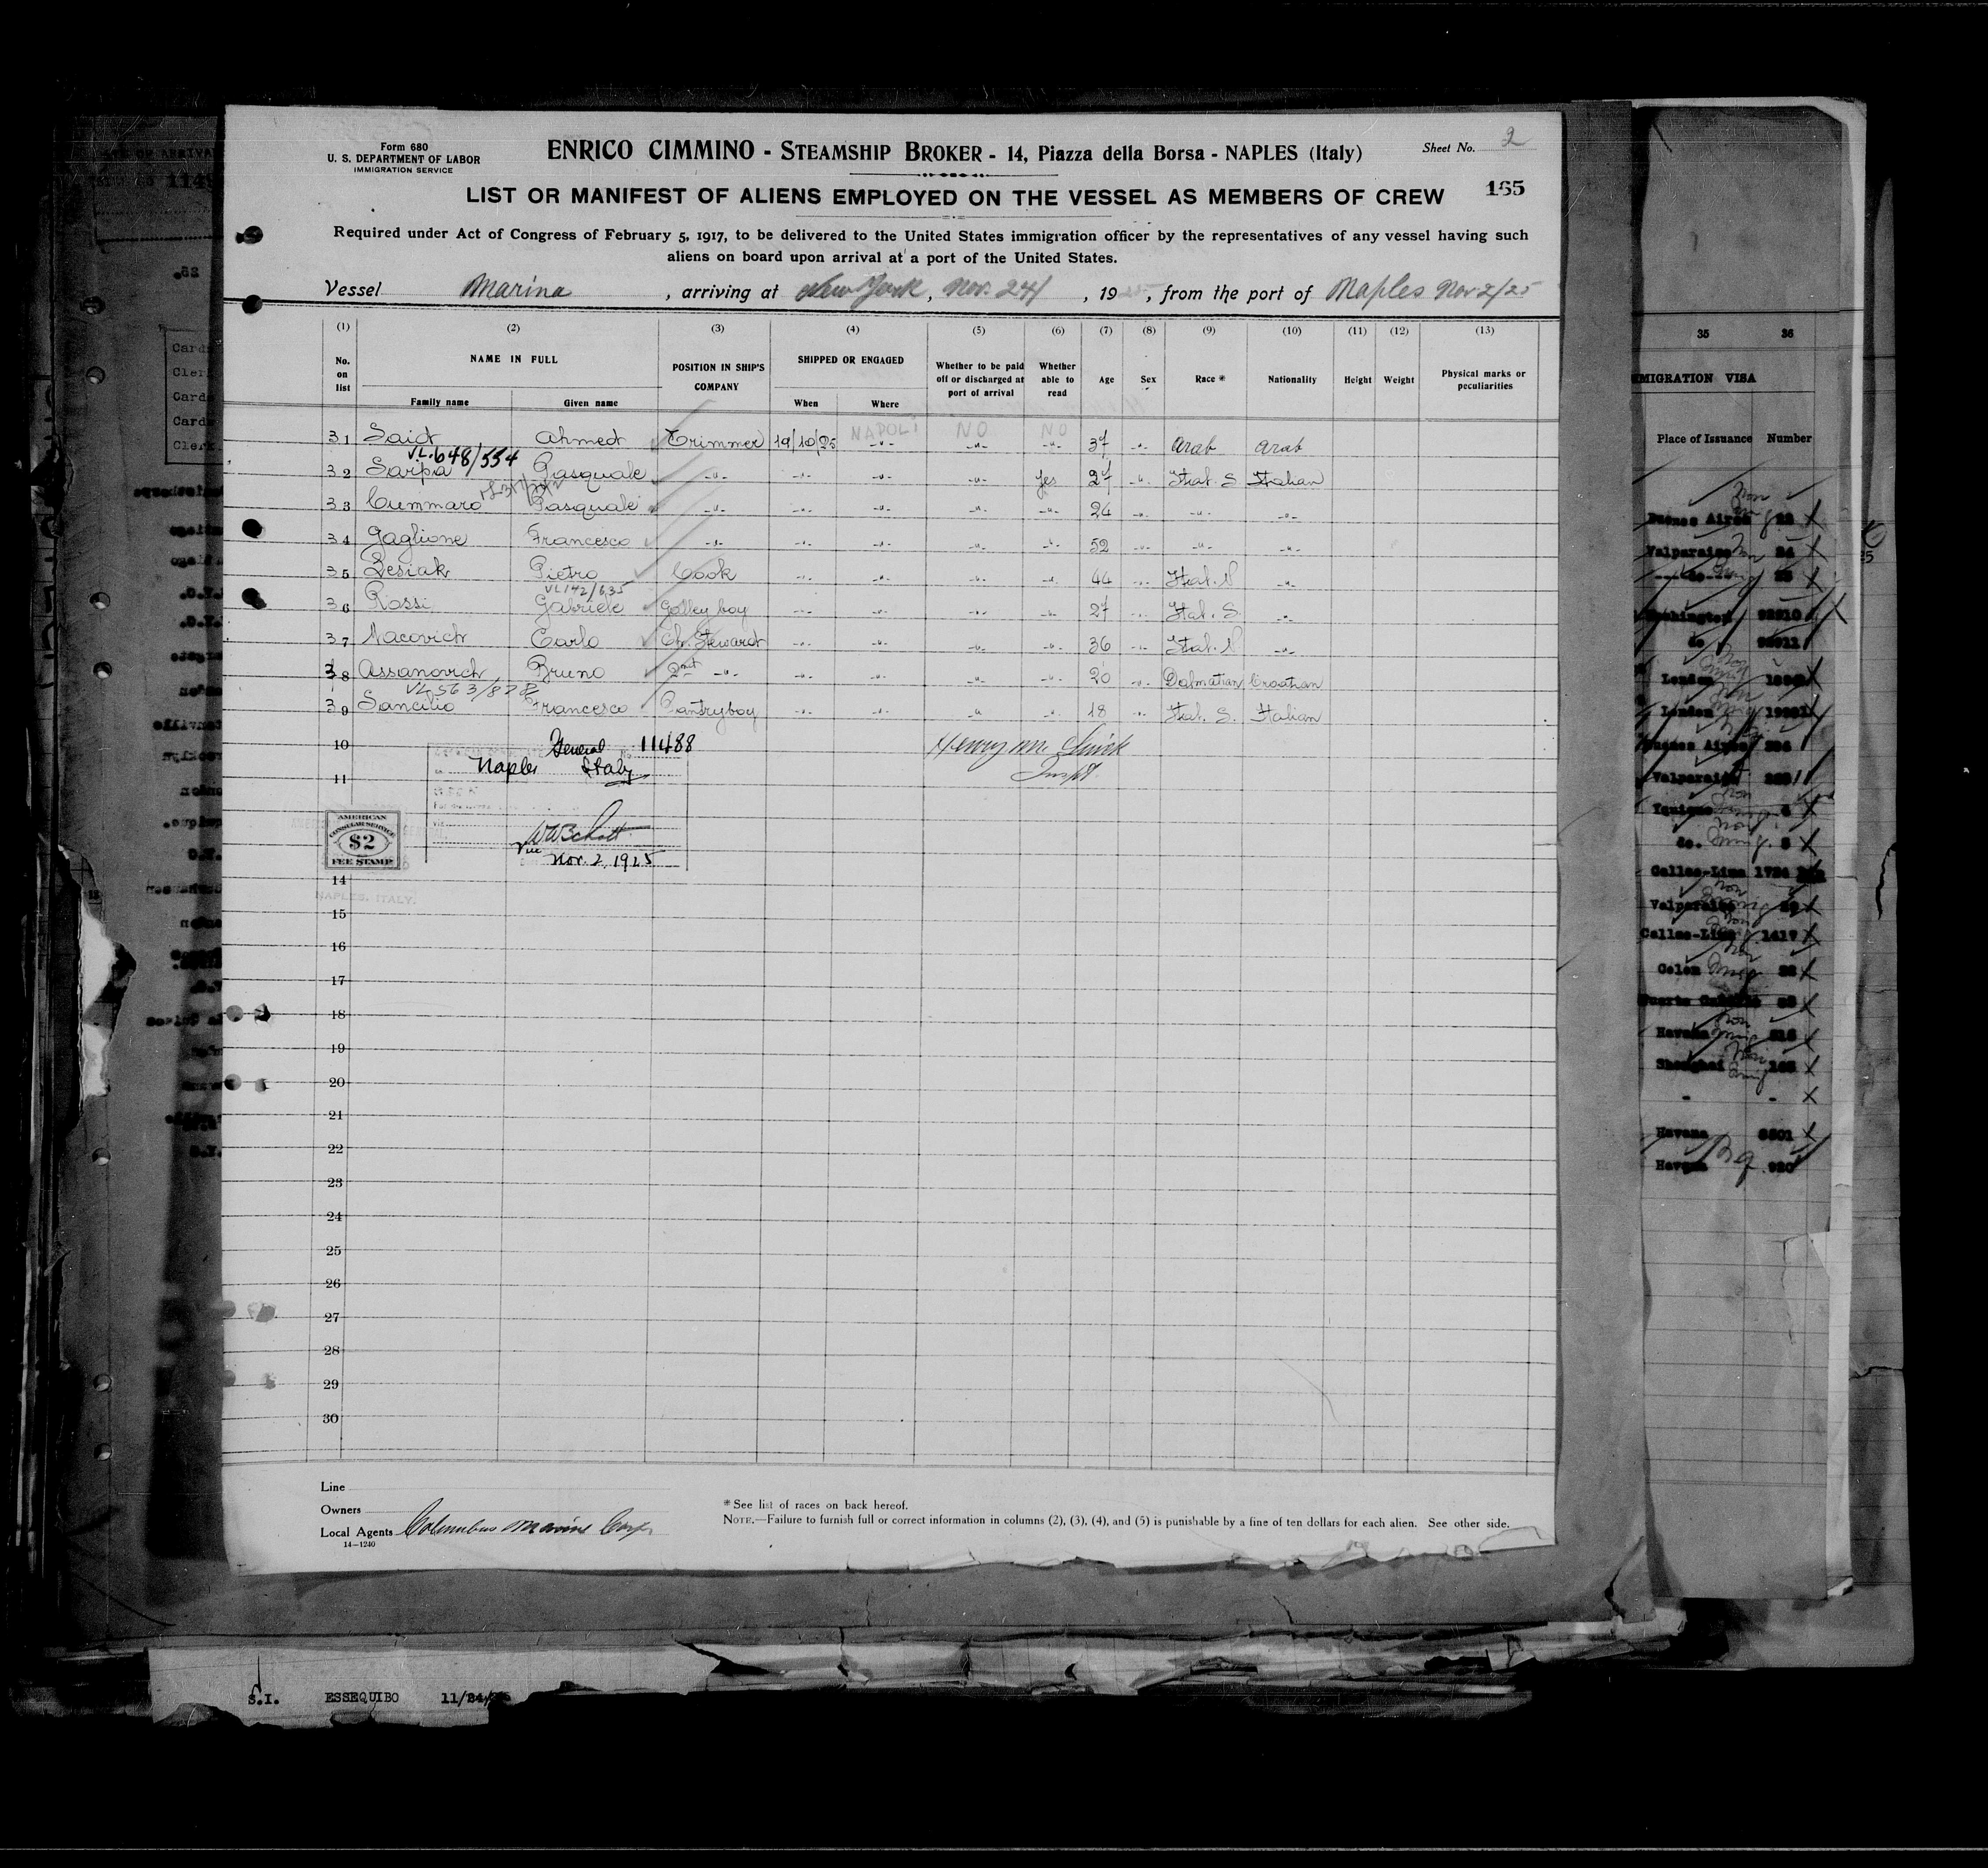 Form 680
U. S. DEPARTMENT OF LABOR
IMMIGRATION SERVICE
ENRICO CIMMINO - STEAMSHIP BROKER - 14, Piazza della Borsa - NAPLES (Italy)
Sheet No. 2
165
LIST OR MANIFEST OF ALIENS EMPLOYED ON THE VESSEL AS MEMBERS OF CREW
Required under Act of Congress of February 5, 1917, to be delivered to the United States immigration officer by the representatives of any vessel having such
aliens on board upon arrival at a port of the United States.
Vessel Marina, arriving at New York, Nov. 24, 1925, from the port of Naples Nov 2/25
(1) (2) (3) (4) (5) (6) (7) (8) (9) (10) (11) (12) (13)
No. on list NAME IN FULL Family name Given name POSITION IN SHIP'S COMPANY SHIPPED OR ENGAGED When Where Whether to be paid off or discharged at port of arrival Whether able to read Age Sex Race * Nationality Height Weight Physical marks or peculiarities
NAPOLI NO NO
31 Said Ahmed Trimmer 19/10/25 -"- -"- -"- 37 -"- Arab Arab
V.L. 648/554
32 Sarpa Pasquale -"- -"- -"- -"- yes 27 -"- Ital. S Italian
33 Cummaro Pasquale -"- -"- -"- -"- -"- 24 -"- -"- -"-
34 Gaglione Francesco -"- -"- -"- -"- -"- 52 -"- -"- -"-
35 Lesiak Pietro Cook -"- -"- -"- -"- 44 -"- Ital. N -"-
VL 142/635
36 Rossi Gabriele Galley boy -"- -"- -"- -"- 27 -"- Ital. S. -"-
37 Nacovich Carlo Ch. Steward -"- -"- -"- -"- 36 -"- Ital. N -"-
38 Assanovich Bruno 2nd -"- -"- -"- -"- -"- 20 -"- Dalmatian Croatian
VL 563/878
39 Sancilio Francesco Pantryboy -"- -"- -"- -"- 18 -"- Ital. S. Italian
10 General 11488
Naples Italy
11
Inspt.
AMERICAN
CONSULAR SERVICE
$2
FEE STAMP
Nov. 2, 1925
14
NAPLES, ITALY.
15
16
17
18
19
20
21
22
23
24
25
26
27
28
29
30
Line
Owners
Local Agents Columbus Marine Corp
14-1240
*See list of races on back hereof.
NOTE.—Failure to furnish full or correct information in columns (2), (3), (4), and (5) is punishable by a fine of ten dollars for each alien. See other side.
35 36
MIGRATION VISA
Place of Issuance Number
Buenos Aires
Valparaiso
Washington 92910
London
London
Buenos Aires
Valparaiso
Iquique
do.
Callao-Lima 1724
Valparaiso
Callao-Lima 1417
Colon
Havana
Shanghai
Havana
Havana
S.I. ESSEQUIBO 11/24/